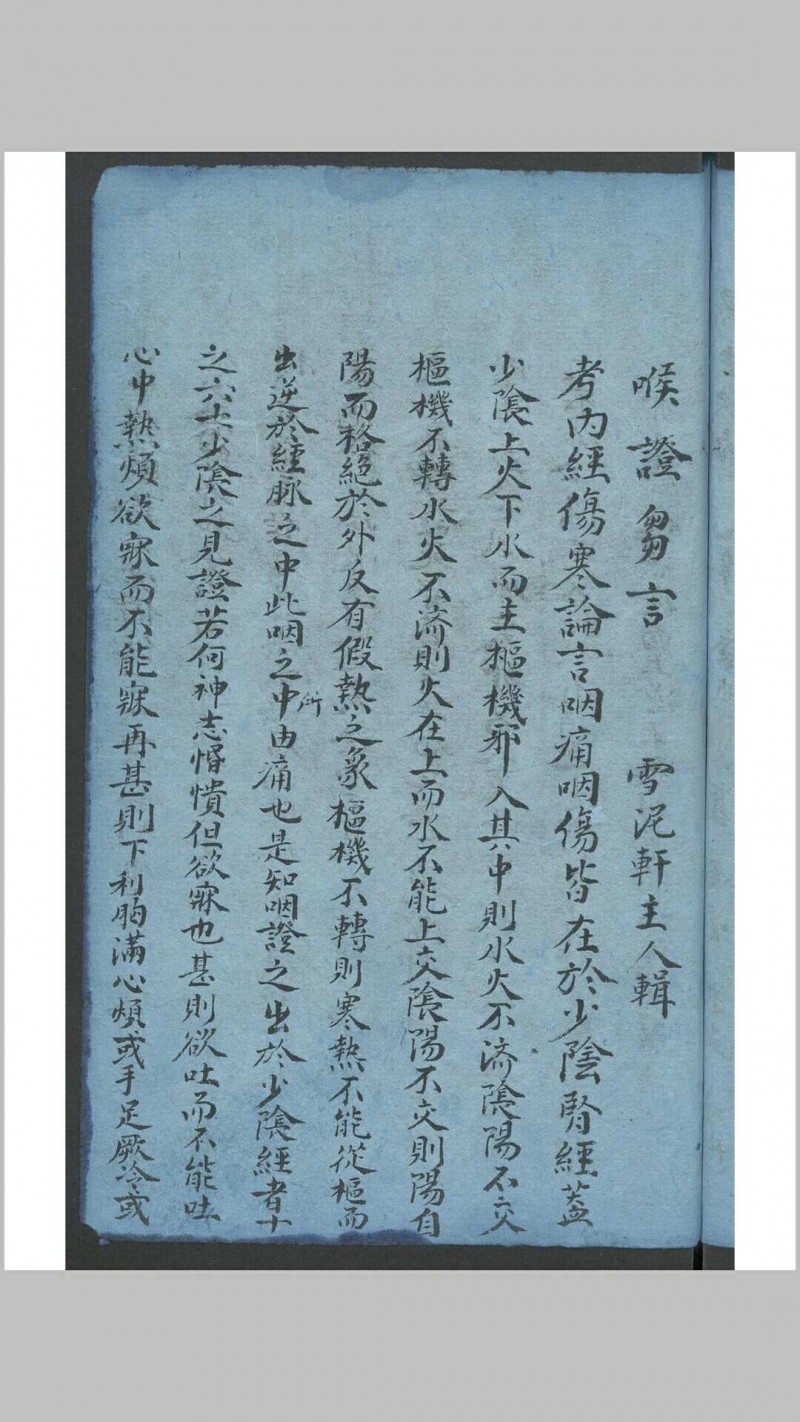 喉證芻言　雪泥軒主人輯
考内經傷寒論言咽痛咽傷皆在於少陰腎經葢
少陰上火下水而主樞機邪入其中則水火不濟陰陽不交
樞機不轉水火不濟則火在上而水不能上交陰陽不交則陽自
陽而格絕於外反有假熱之象樞機不轉則寒熱不能從樞而
出逆於經脉之中此咽之中所由痛也是知咽證之出於少陰經者十
之六七少陰之見證若何神志惛憒但欲寐也甚則欲吐而不能吐
心中熱煩欲寐而不能寐再甚則下利胸滿心煩或手足厥冷或